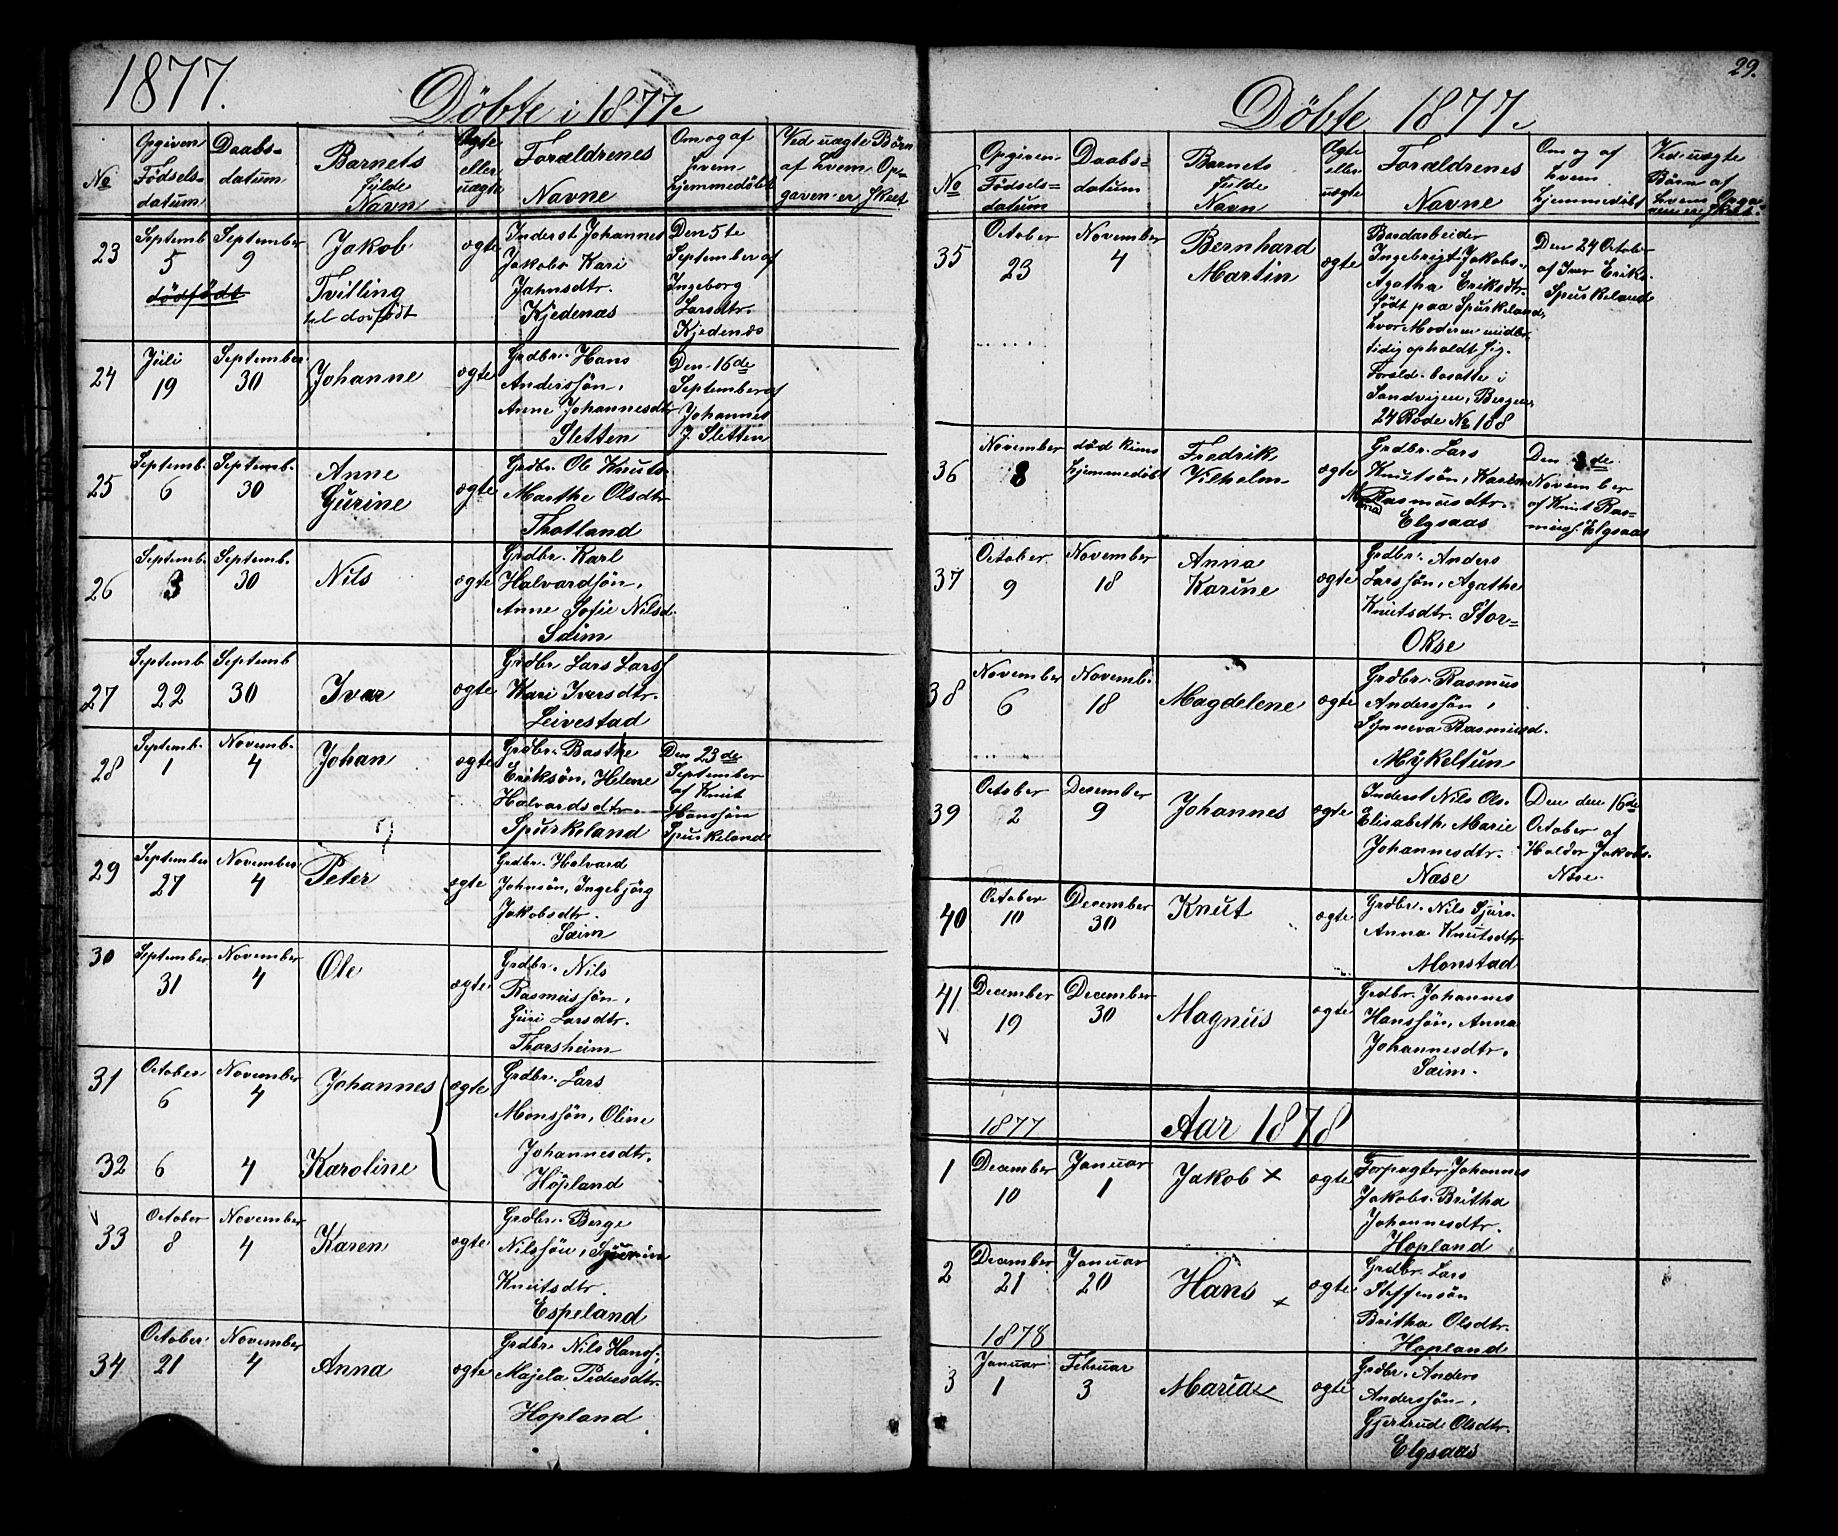 1877.
Döbte i 1877.
No
Opgiven
Födsels-
datum
Daabs-
datum
Barnets
fulde
Navn
Ægte
eller
uægte
Forældrenes
Navne
Om og af
hvem
hjemmedöbt
Ved uægte Börn
af hvem Op-
gaven er skeet
23
Septemb
5
dödfödt
September
9
Jakob
Tvilling
til dödfödt
ægte
Inderst Johannes
Jakobs. Kari
Jahnsdtr.
Kjedenæs
Den 5te
September af
Ingeborg
Larsdtr.
Kjedenæs
24
Juli
19
September
30
Johanne
ægte
Grdbr. Hans
Anderssön,
Anne Johannesdtr
Sletten
Den 16de
September af
Johannes
J. Sletten
25
Septemb.
6
Septemb.
30
Anne
Gurine
ægte
Grdbr. Ole Knuts.
Marthe Olsdtr
Thotland
26
Septemb.
3
Septemb.
30
Nils
ægte
Grdbr. Karl
Halvardsön,
Anne Sofie Nilsd.
Sæim
27
Septemb.
22
Septemb
30
Ivar
ægte
Grdbr. Lars Larss
Kari Iversdtr.
Leivestad
28
Septemb.
1
Novemb.
4
Johan
ægte
Grdbr. Bastke
Eriksön, Helene
Halvardsdtr.
Spurkeland
Den 23de
September
af Knut
Hanssön
Spurkeland
29
September
27
November
4
Peter
ægte
Grdbr. Halvard
Johnsön, Ingebjörg
Jakobsdtr.
Sæim
30
September
31
November
4
Ole
ægte
Grdbr. Nils
Rasmussön,
Guri Larsdtr.
Thorsheim
31
October
6
November
4
Johannes
ægte
Grdbr. Lars
Monssön, Oline
Johannesdtr.
Höpland
32
6
4
Karoline
33
October
8
November
4
Karen
ægte
Grdbr. Berge
Nilssön,
Knutsdtr.
Espeland
34
October
21
November
4
Anna
ægte
Grdbr. Nils Hanss.,
Majela Pedersdtr.
Hopland
29.
Döbte 1877.
No
Opgiven
Födsels-
datum
Daabs-
datum
Barnets
fulde
Navn
Ægte
eller
uægte
Forældrenes
Navne
Om og af
hvem
hjemmedöbt
Ved uægte
Börn af
hvem Opga-
ven er skeet.
35
October
23
November
4
Bernhard
Martin
ægte
Bordarbeider
Ingebrigt Jakobs.,
Agatha Eriksdtr.
födt paa Spurkeland,
hvor Moderen midler-
tidig opholdt sig.
Foræld. bosatte i
Sandvigen, Bergen,
24 Rode No 188
Den 24 October
af Iver Eriks.
Spurkeland
36
November
8
död kuns
hjemmedöbt
Fredrik
Vilhelm
ægte
Grdbr. Lars
Knutsön, Karen
Rasmusdtr.
Elgsaas
Den 8de
November
af Knut Ras-
muss. Elgsaas
37
October
9
November
18
Anna
Karine
ægte
Grdbr. Anders
Larssön, Agathe
Knutsdtr. Stor-
Okse
38
November
6
Novemb.
18
Magdelene
ægte
Grdbr. Rasmus
Anderssön,
Synneva Rasmusd.
Mykeltun
39
October
2
Desember
9
Johannes
ægte
Inderst Nils Ols.
Elisabeth Marie
Johannesdtr.
Næse
Den den 16de
October af
Haldor Jakobs.
Næse.
40
October
10
December
30
Knut
ægte
Grdbr. Nils Sjurs.
Anna Knutsdtr
Monstad
41
December
19
December
30
Magnus
ægte
Grdbr. Johannes
Hanssön, Anna
Johannesdtr.
Sæim.
1877
Aar 1878
1
December
10
Januar
1
Jakob ×
ægte
Forpagter Johannes
Jakobs. Britha
Johannesdtr.
Hopland
2
December
21
Januar
20
Hans ×
ægte
Grdbr. Lars
Steffensön
Britha Olsdtr.
Hopland
1878
3
Januar
1
Februar
3
Maria
ægte
Grdbr. Anders
Anderssön,
Gjertrude Olsdtr.
Elgsaas